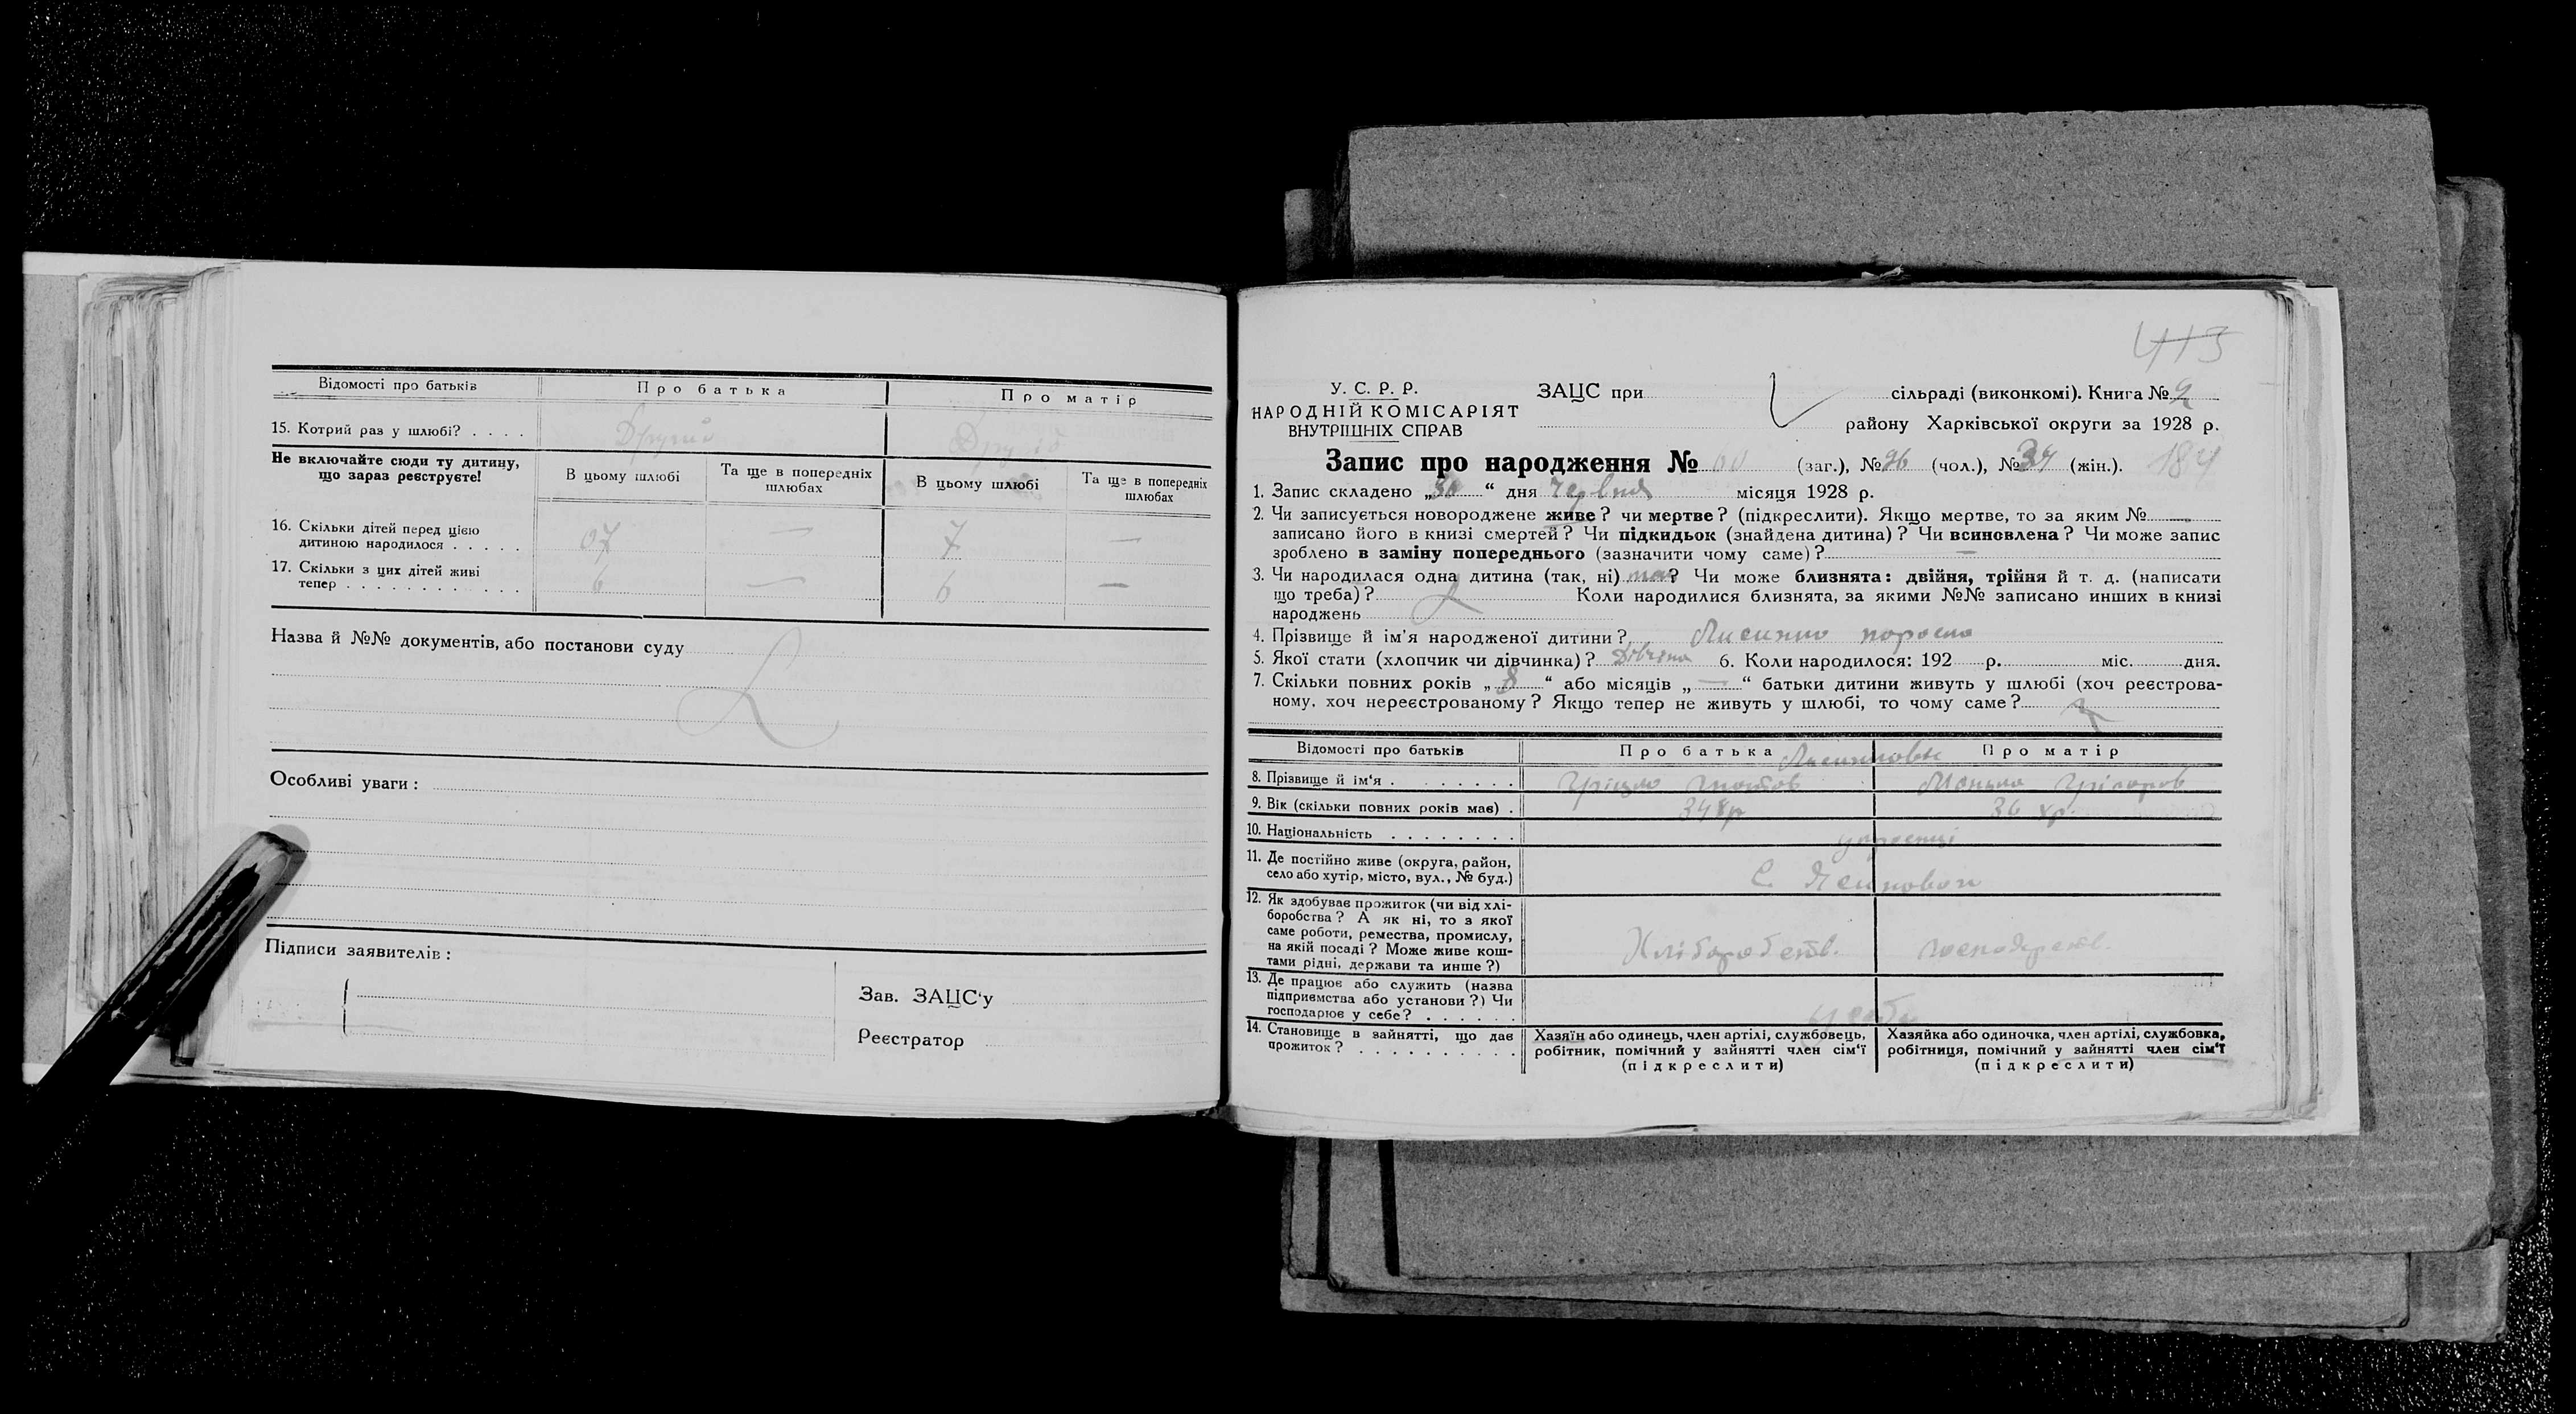 Відомості про батьків Про батька Про матір
15. Котрий раз у шлюбі? . . . . Другий Другий
Не включайте сюди ту дитину, що зараз реєструєте! В цьому шлюбі Та ще в попередніх шлюбах В цьому шлюбі Та ще в попередніх шлюбах
16. Скільки дітей перед цією
дитиною народилося . . . . . 07 — 7 —
17. Скільки з цих дітей живі
тепер . . . . . . . . . . . . 6 — 6 —
Назва й №№ документів, або постанови суду
Особливі уваги :
Підписи заявителів :
Зав. ЗАЦС'у
Реєстратор
413
У. С. Р. Р.
НАРОДНІЙ КОМІСАРІЯТ
ВНУТРІШНІХ СПРАВ
ЗАЦС при сільраді (виконкомі). Книга № 2
району Харківської округи за 1928 р.
Запис про народження № 60 (заг.), № 26 (чол.), № 34 (жін.). 184
1. Запис складено „30“ дня червня місяця 1928 р.
2. Чи записується новороджене живе? чи мертве? (підкреслити). Якщо мертве, то за яким №
записано його в книзі смертей? Чи підкидьок (знайдена дитина)? Чи всиновлена? Чи може запис
зроблено в заміну попереднього (зазначити чому саме)? —
3. Чи народилася одна дитина (так, ні) так? Чи може близнята: двійня, трійня й т. д. (написати
що треба)? Коли народилися близнята, за якими №№ записано инших в книзі
народжень
4. Прізвище й ім'я народженої дитини?
5. Якої стати (хлопчик чи дівчинка)? Дівчина 6. Коли народилося: 192 р. міс. дня.
7. Скільки повних років „8“ або місяців „—“ батьки дитини живуть у шлюбі (хоч реєстрова-
ному, хоч нереєстрованому? Якщо тепер не живуть у шлюбі, то чому саме?
Відомості про батьків Про батька Про матір
8. Прізвище й ім'я . . . . . . . .
9. Вік (скільки повних років має) . 34 36
10. Національність . . . . . . . . українці
11. Де постійно живе (округа, район,
село або хутір, місто, вул., № буд.) С.
12. Як здобуває прожиток (чи від хлі-
боробства? А як ні, то з якої
саме роботи, ремества, промислу,
на якій посаді? Може живе кош-
тами рідні, держави та инше?) Хліборобств.
13. Де працює або служить (назва
підприємства або установи?) Чи
господарює у себе? . . . . . . у себе
14. Становище в зайнятті, що дає
прожиток? . . . . . . . . . .
Хазяїн або одинець, член артілі, службовець,
робітник, помічний у зайнятті член сім'ї
(підкреслити)
Хазяйка або одиночка, член артілі, службовка,
робітниця, помічний у зайнятті член сім'ї
(підкреслити)